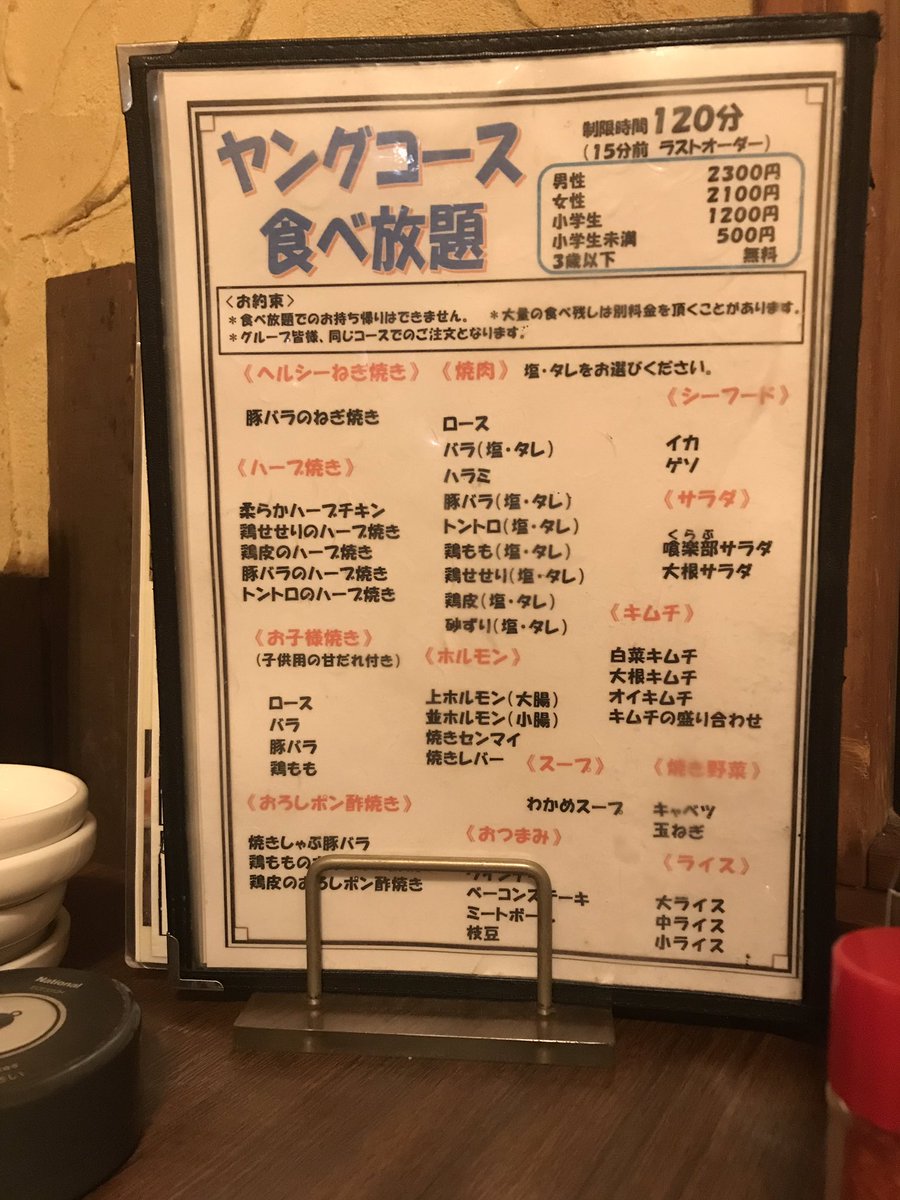 ヤングコース
食べ放題
制限時間 120分
(15分前 ラストオーダー)
男性 2300円
女性 2100円
小学生 1200円
小学生未満 500円
3歳以下 無料
<お約束>
*食べ放題でのお持ち帰りはできません。 *大量の食べ残しは別料金を頂くことがあります。
*グループ皆様、同じコースでのご注文となります。
《ヘルシーねぎ焼き》
豚バラのねぎ焼き
《ハーブ焼き》
柔らかハーブチキン
鶏せせりのハーブ焼き
鶏皮のハーブ焼き
豚バラのハーブ焼き
トントロのハーブ焼き
《お子様焼き》
(子供用の甘だれ付き)
ロース
バラ
豚バラ
鶏もも
《おろしポン酢焼き》
焼きしゃぶ豚バラ
鶏ももの
鶏皮のおろしポン酢焼き
《焼肉》 塩・タレをお選びください。
ロース
バラ(塩・タレ)
ハラミ
豚バラ(塩・タレ)
トントロ(塩・タレ)
鶏もも(塩・タレ)
鶏せせり(塩・タレ)
鶏皮(塩・タレ)
砂ずり(塩・タレ)
《ホルモン》
上ホルモン(大腸)
並ホルモン(小腸)
焼きセンマイ
焼きレバー
《スープ》
わかめスープ
《おつまみ》
ベーコンステーキ
ミートボー
枝豆
《シーフード》
イカ
ゲソ
《サラダ》
くらぶ
喰楽部サラダ
大根サラダ
《キムチ》
白菜キムチ
大根キムチ
オイキムチ
キムチの盛り合わせ
《焼き野菜》
キャベツ
玉ねぎ
《ライス》
大ライス
中ライス
小ライス
National